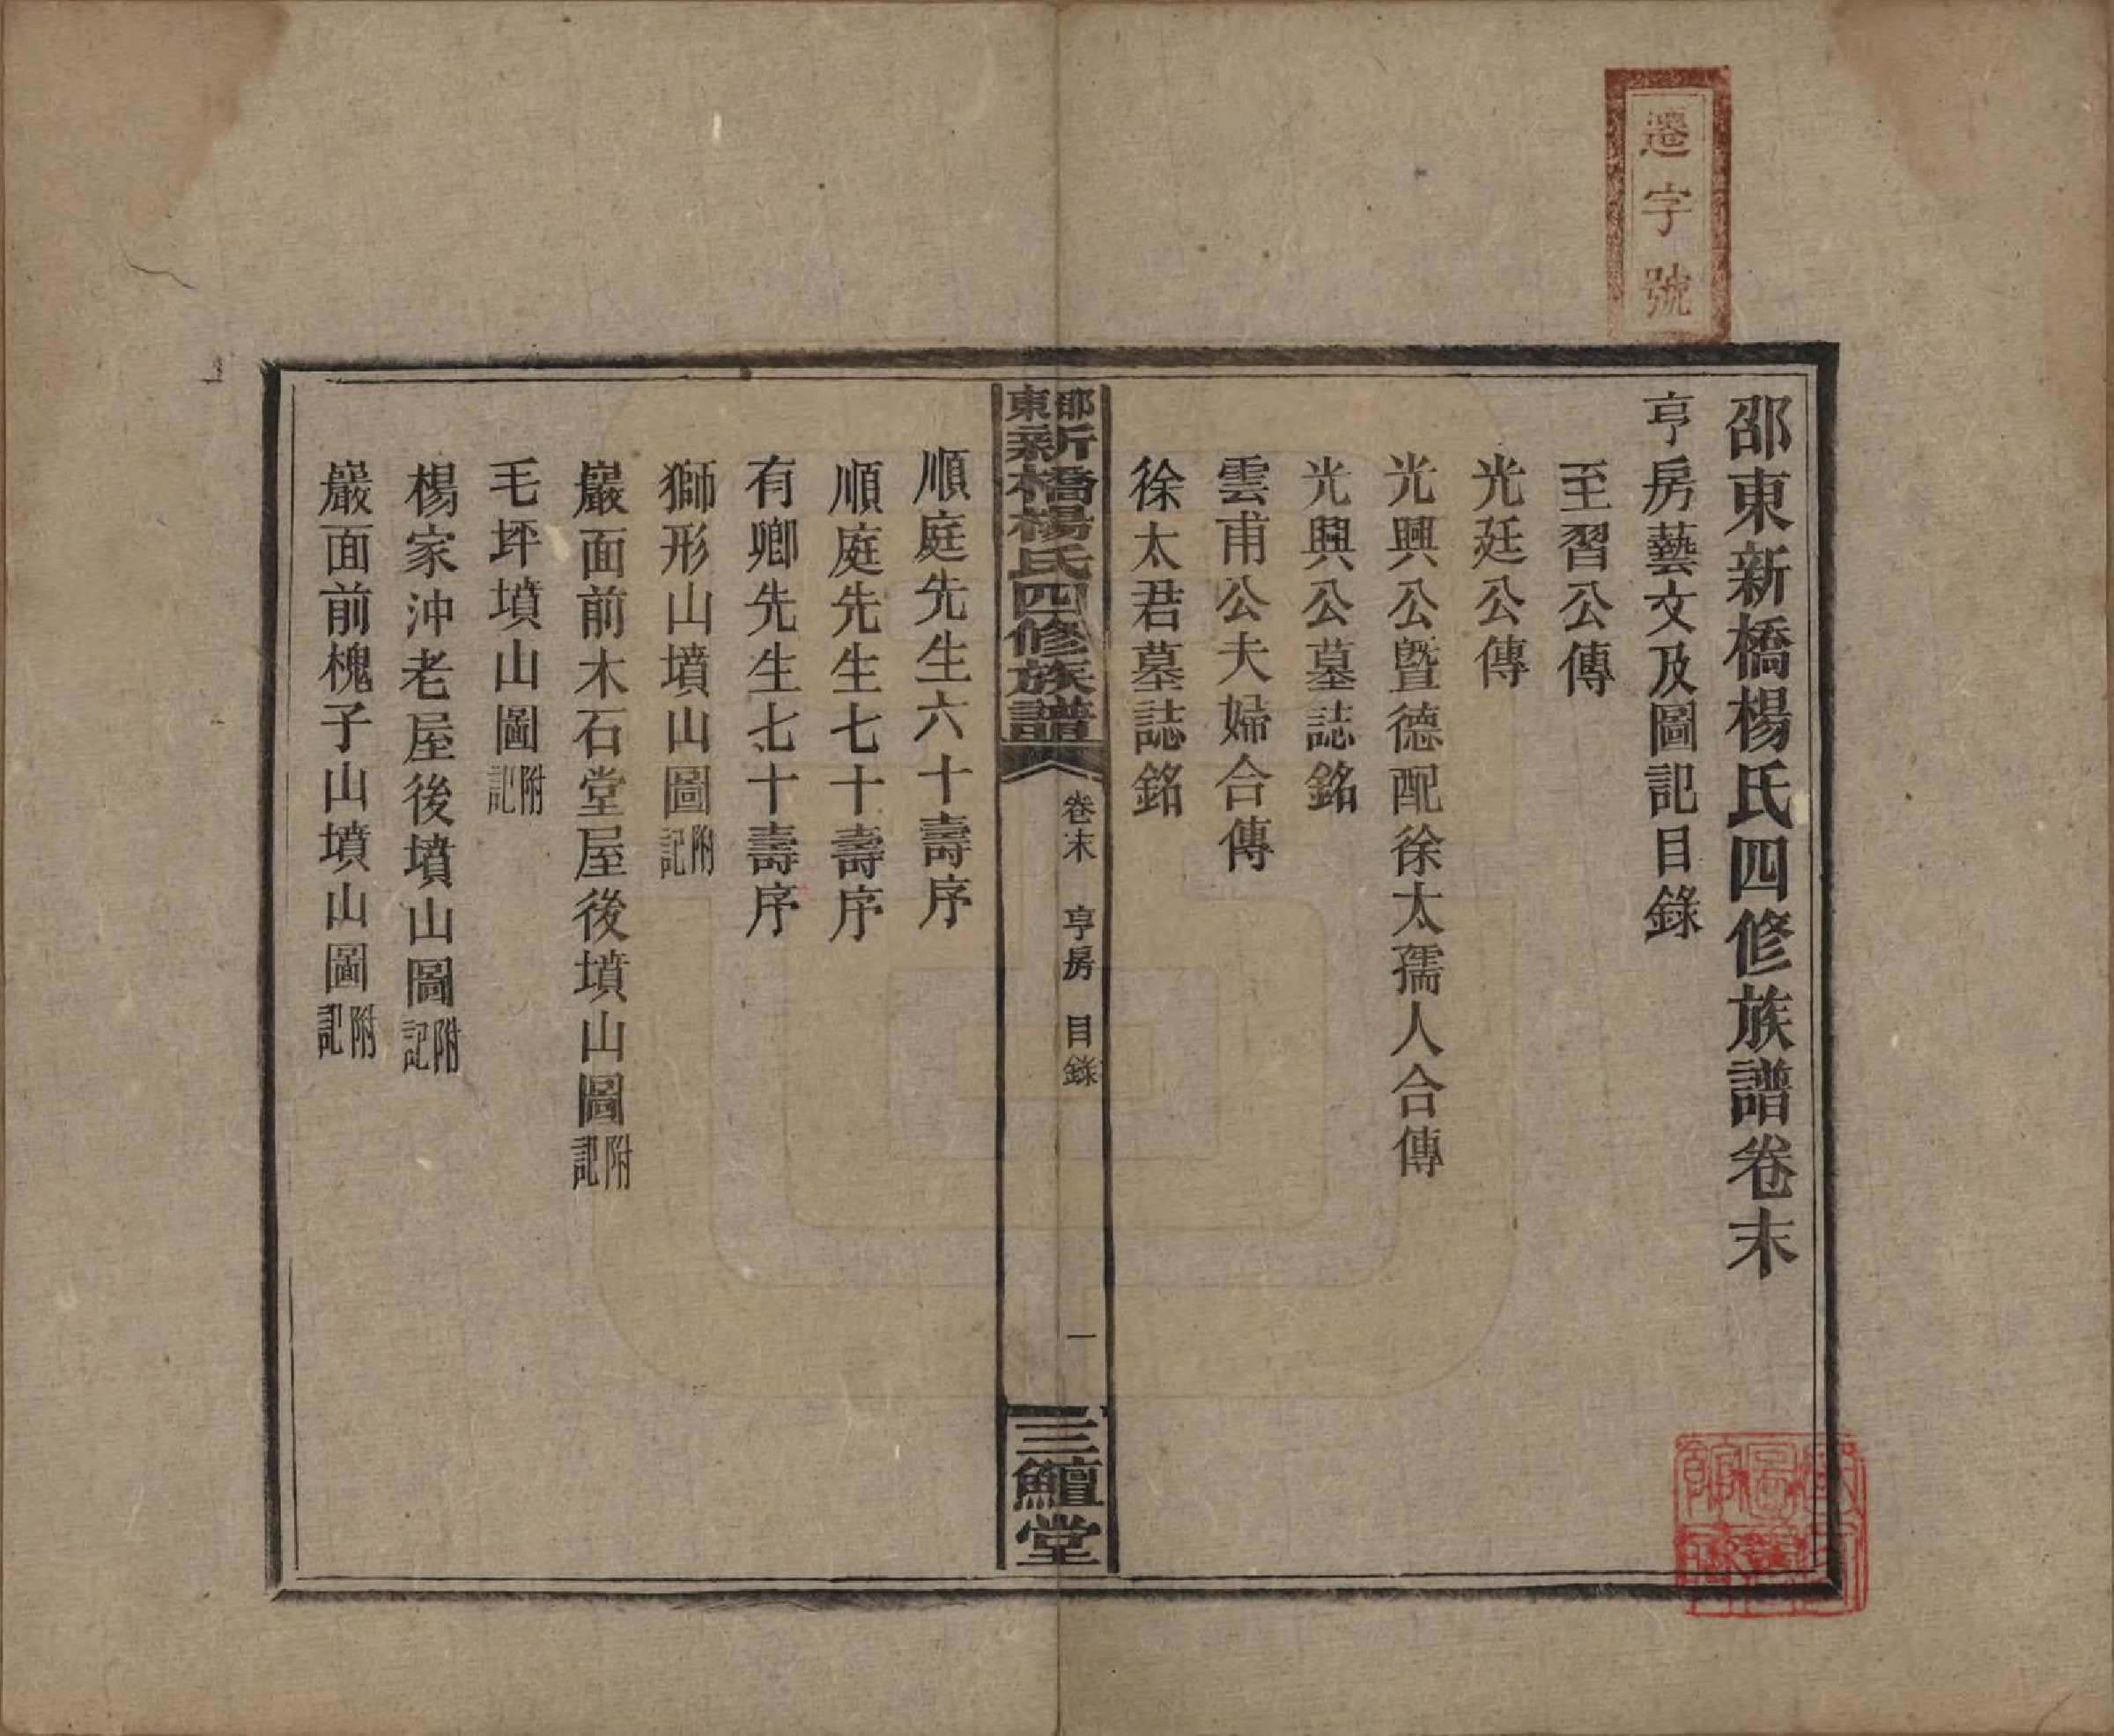 遷字號
邵東新橋楊氏四修族譜卷末
亨房藝文及圖記目錄
至習公傳
光廷公傳
光興公暨德配徐太孺人合傳
光興公墓誌銘
雲甫公夫婦合傳
徐太君墓誌銘
邵東新橋楊氏四修族譜
卷末 亨房 目錄
一
三鱣堂
順庭先生六十壽序
順庭先生七十壽序
有卿先生七十壽序
獅形山墳山圖附記
巖面前木石堂屋後墳山圖附記
毛坪墳山圖附記
楊家沖老屋後墳山圖附記
巖面前槐子山墳山圖附記